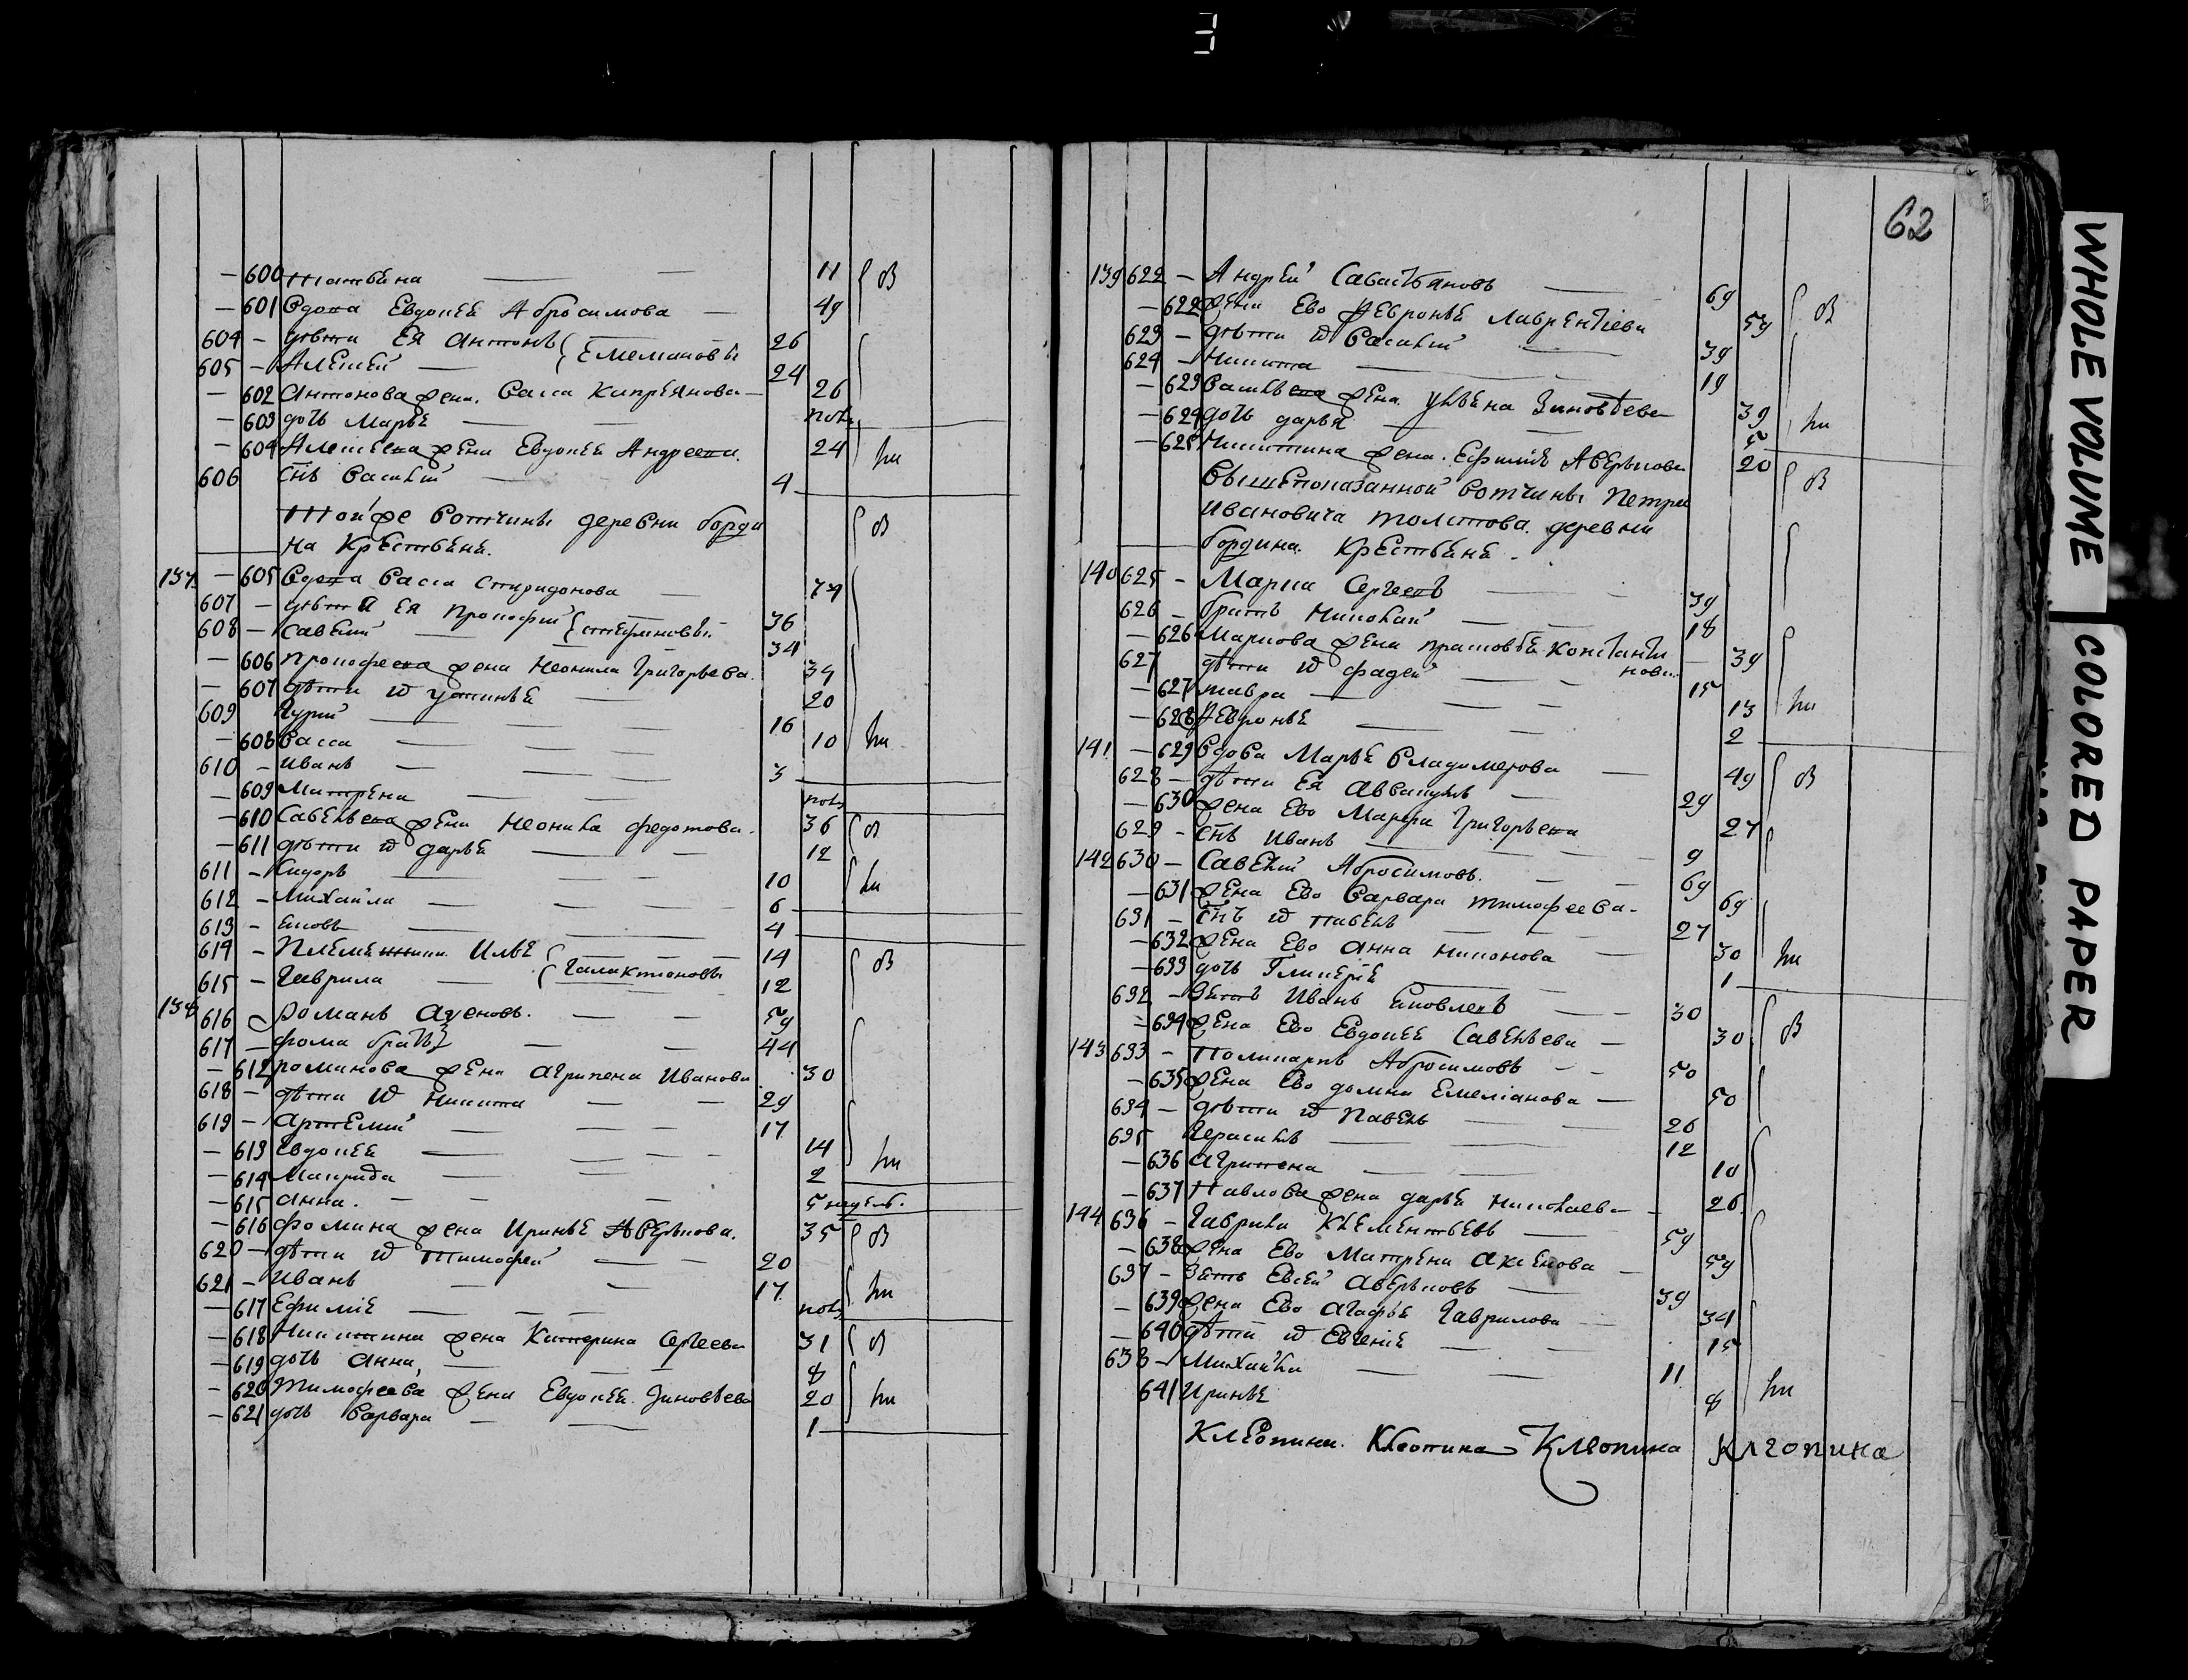 600 Татьяна — 11
601 Вдова Евдокея Абросимова — 49
604 — дѣти Ея Антонъ 26
605 — Алексей — Емелиановы 24
602 Антонова жена Васса Киприянова — 26
603 дочь Марья —
604 Алексеева жена Евдокея Андреева 24
606 снъ Василий — 4
Той же вотчины деревни борди
на Крестьяне
137 — 605 Вдова Васса Спиридонова — 74
607 — дѣти Ея Прокофий 36
608 — Савелий — Стефановы 34
606 Прокофьева жена Неонила Григорьева 34
607 дѣти W Устинья 20
609 Гурий — 16
608 Васса — 10
610 — Иванъ — 3
609 Матрена
610 Савельева жена Неонила Федотова 36
611 дѣти W дарья — 12
611 — Сидоръ 10
612 — Михаила — 6
613 — Яковъ — 4
614 — Племянники Илья 14
615 — Гаврила — Галактионовы 12
138 616 Романъ Аѯеновъ — 59
617 — Фома братъ — 44
612 романова жена Агрипена Иванова 30
618 — дѣти W Никита — 29
619 — Артемий — 17
613 Евдокея — 14
614 — 2
615 Анна — 5 недель
616 Фомина жена Иринья Аверьянова 35
620 — дѣти W Тимофей — 20
621 — Иванъ 17
617 Ефимия —
618 Никитина жена Катерина Сергеева 31
619 дочь Анна — 8
620 Тимофеева жена Евдокея Зиновьева 20
621 дочь Варвара — 1
62
139 622 — Андрей Савастьяновъ — 69
622 жена Ево Февронья Лаврентіева 59
623 — дѣти W Василий 39
624 — Никита — 19
623 Васильева жена Ульяна Зиновьева 39
624 дочь дарья — 5
625 Никитина жена Ефимия Аверьянова 20
Вышепоказанной вотчины Петра
Ивановича толстова деревни
бордина Крестьяне
140 625 — Марка Сергеевъ — 39
626 — братъ Николай — 18
626 Маркова жена прасковья Константи
нова — 39
627 дѣти W Фадей — 15
627 мавра — 13
628 Февронья — 2
141 — 629 Вдова Марья Владимерова — 49
628 — дѣти Ея Аввакумъ — 29
630 жена Ево Марфа Григорьева 27
629 — снъ Иванъ — 9
142 630 — Савелий Абросимовъ — 69
631 жена Ево Варвара тимофеева — 69
631 — снъ W Павелъ — 27
632 жена Ево Анна Никонова — 30
633 дочь Гликерія — 1
632 — Зять Иванъ Яковлевъ — 30
634 жена Ево Евдокея Савельева — 30
143 633 — Поликарпъ Абросимовъ — 50
635 жена Ево домна Емелианова — 50
634 — дѣти W Павелъ — 26
635 Герасимъ — 12
636 Агрипена — 10
637 Павлова жена дарья Николаева — 26
144 636 — Гаврила Клементьевъ — 59
638 жена Ево Матрена Аксенова — 59
637 — Зять Евсей Аверьяновъ — 39
639 жена Ево Агафья Гаврилова 34
640 дѣти W Евгения — 15
638 — Михаила — 11
641 Иринья 8
Клеопина Клеопина Клеопина Клеопина
WHOLE VOLUME
COLORED PAPER